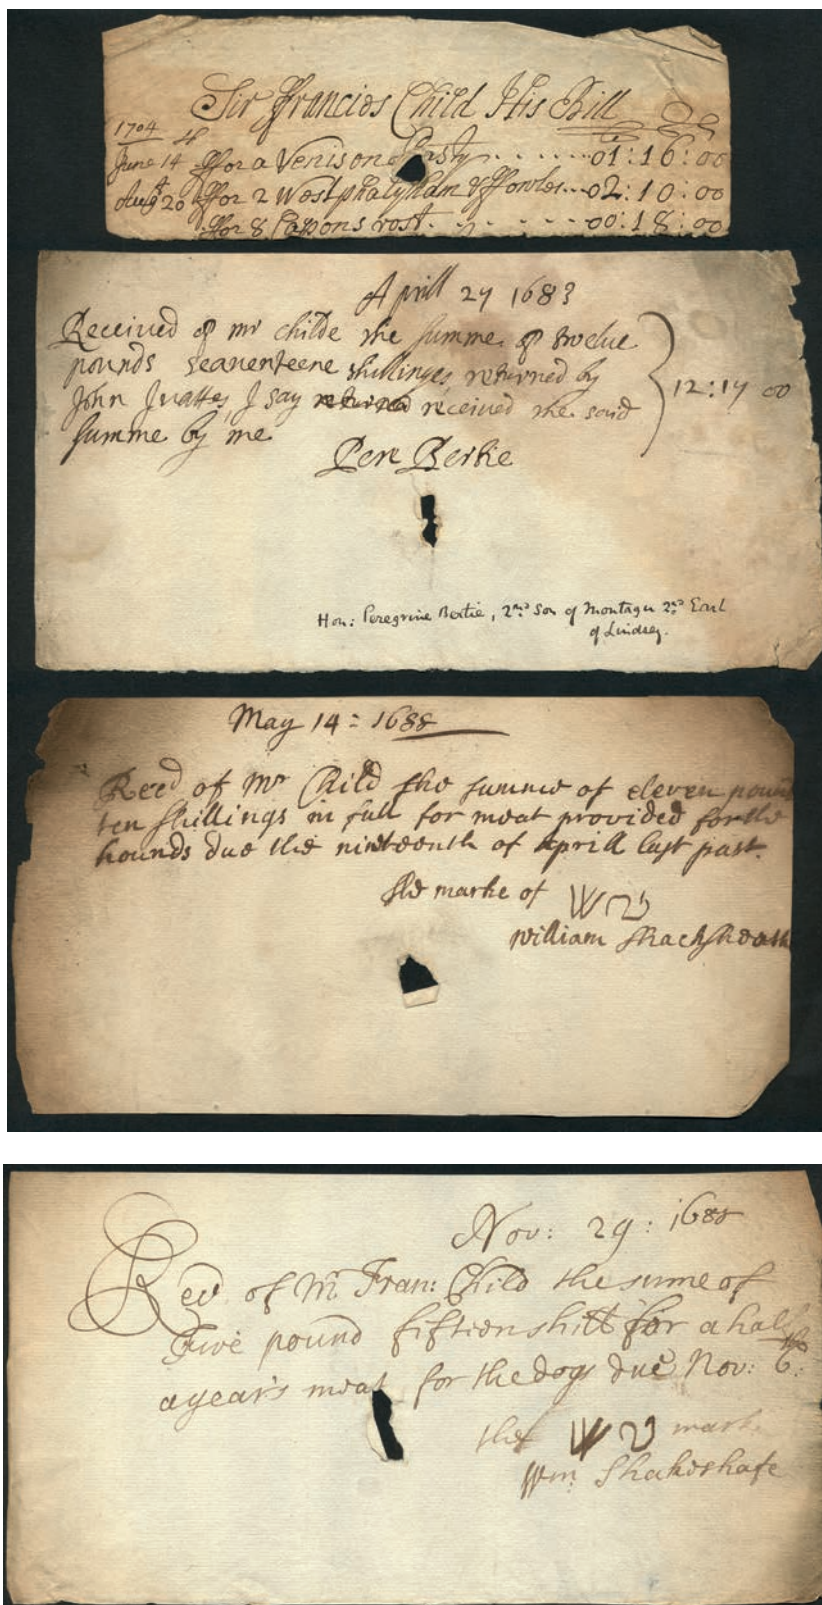 Sir Francis Child His Bill
1704
June 14 ffor a Venison Pasty . . . . . . 01:16:00
Augst 20 ffor 2 Westphalyham & ffowles... 02:10:00
ffor 8 Capons rost . . . . . . 00:18:00
Aprill 27 1683
Received of mr childe the summe of twelue
pounds seauenteene shillinges returned by
John I say returned received the said
summe by me
12:17 00
Pere Bertie
Hon: Peregrine Bertie, 2nd Son of Montagu 2nd Earl
of Lindsey.
May 14 = 1688
Recd of Mr Child the summe of eleven pound
ten shillings in full for meat provided for the
hounds due the ninteenth of Aprill last past.
the marke of W
William Shacksheath
Nov: 29: 1688
Recd of Mr Fran: Child the sume of
Five pound fifteen shill for a half
a year's meat for the dogs due Nov: 6th:
the W mark
Wm Shakeshafe